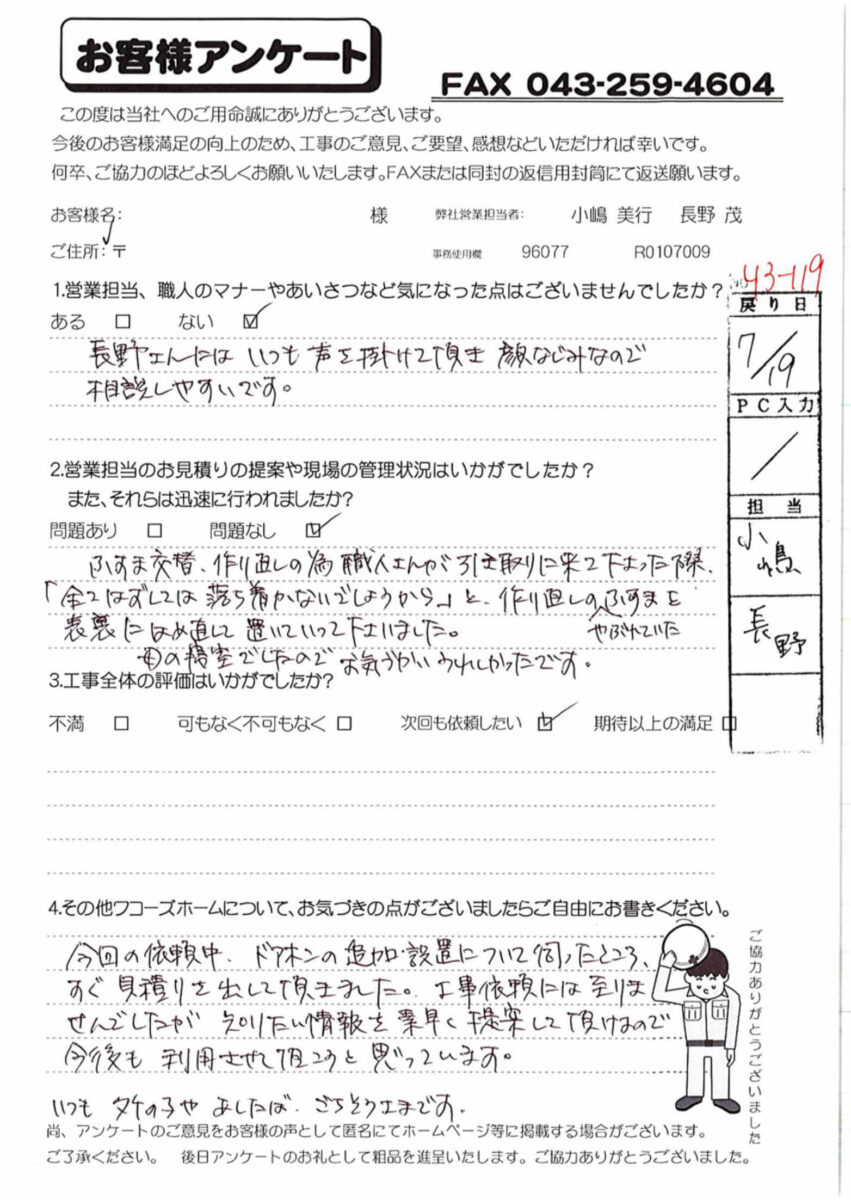 お客様アンケート
FAX 043-259-4604
この度は当社へのご用命誠にありがとうございます。
今後のお客様満足の向上のため、工事のご意見、ご要望、感想などいただければ幸いです。
何卒、ご協力のほどよろしくお願いいたします。FAXまたは同封の返信用封筒にて返送願います。
お客様名: 様 弊社営業担当者: 小嶋 美行 長野 茂
ご住所:〒 事務使用欄 96077 R0107009
43-119
1.営業担当、職人のマナーやあいさつなど気になった点はございませんでしたか?
ある □ ない ☑
長野さんには いつも 声を掛けて頂き 顔なじみなので
相談しやすいです。
戻り日
7/19
PC入力
/
担当
小嶋
長野
2.営業担当のお見積りの提案や現場の管理状況はいかがでしたか?
また、それらは迅速に行われましたか?
問題あり □ 問題なし ☑
ふすま交替、作り直しの為 職人さんが引き取りに来て下さった際、
「全てはずしては落ち着かないでしょうから」と、作り直しのふすまを
やぶれていた
表裏にはめ直して置いていって下さいました。
母の寝室でしたので お気づかいうれしかったです。
3.工事全体の評価はいかがでしたか?
不満 □ 可もなく不可もなく □ 次回も依頼したい ☑ 期待以上の満足 □
4.その他ワコーズホームについて、お気づきの点がございましたらご自由にお書きください。
今回の依頼中、ドアホンの追加・設置について伺ったところ、
すぐ見積りを出して頂きました。工事依頼には至りま
せんでしたが 知りたい情報を素早く提案して頂けるので
今後も 利用させて頂こうと思っています。
いつも タケの子や あしたば、ごちそうさまです。
ご協力ありがとうございました
尚、アンケートのご意見をお客様の声として匿名にてホームページ等に掲載する場合がございます。
ご了承ください。 後日アンケートのお礼として粗品を進呈いたします。ご協力ありがとうございました。